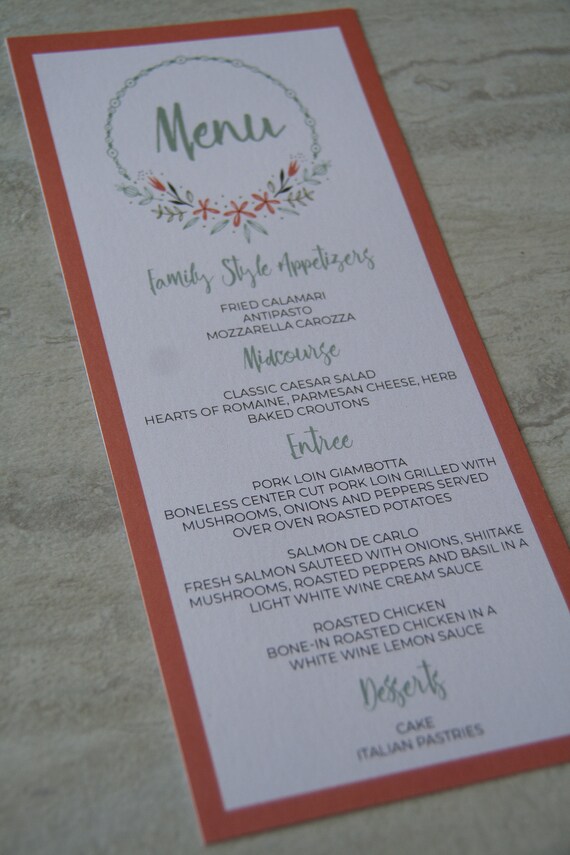 Menu
Family Style Appetizers
FRIED CALAMARI
ANTIPASTO
MOZZARELLA CAROZZA
Midcourse
CLASSIC CAESAR SALAD
HEARTS OF ROMAINE, PARMESAN CHEESE, HERB
BAKED CROUTONS
Entree
PORK LOIN GIAMBOTTA
BONELESS CENTER CUT PORK LOIN GRILLED WITH
MUSHROOMS, ONIONS AND PEPPERS SERVED
OVER OVEN ROASTED POTATOES
SALMON DE CARLO
FRESH SALMON SAUTEED WITH ONIONS, SHIITAKE
MUSHROOMS, ROASTED PEPPERS AND BASIL IN A
LIGHT WHITE WINE CREAM SAUCE
ROASTED CHICKEN
BONE-IN ROASTED CHICKEN IN A
WHITE WINE LEMON SAUCE
Desserts
CAKE
ITALIAN PASTRIES